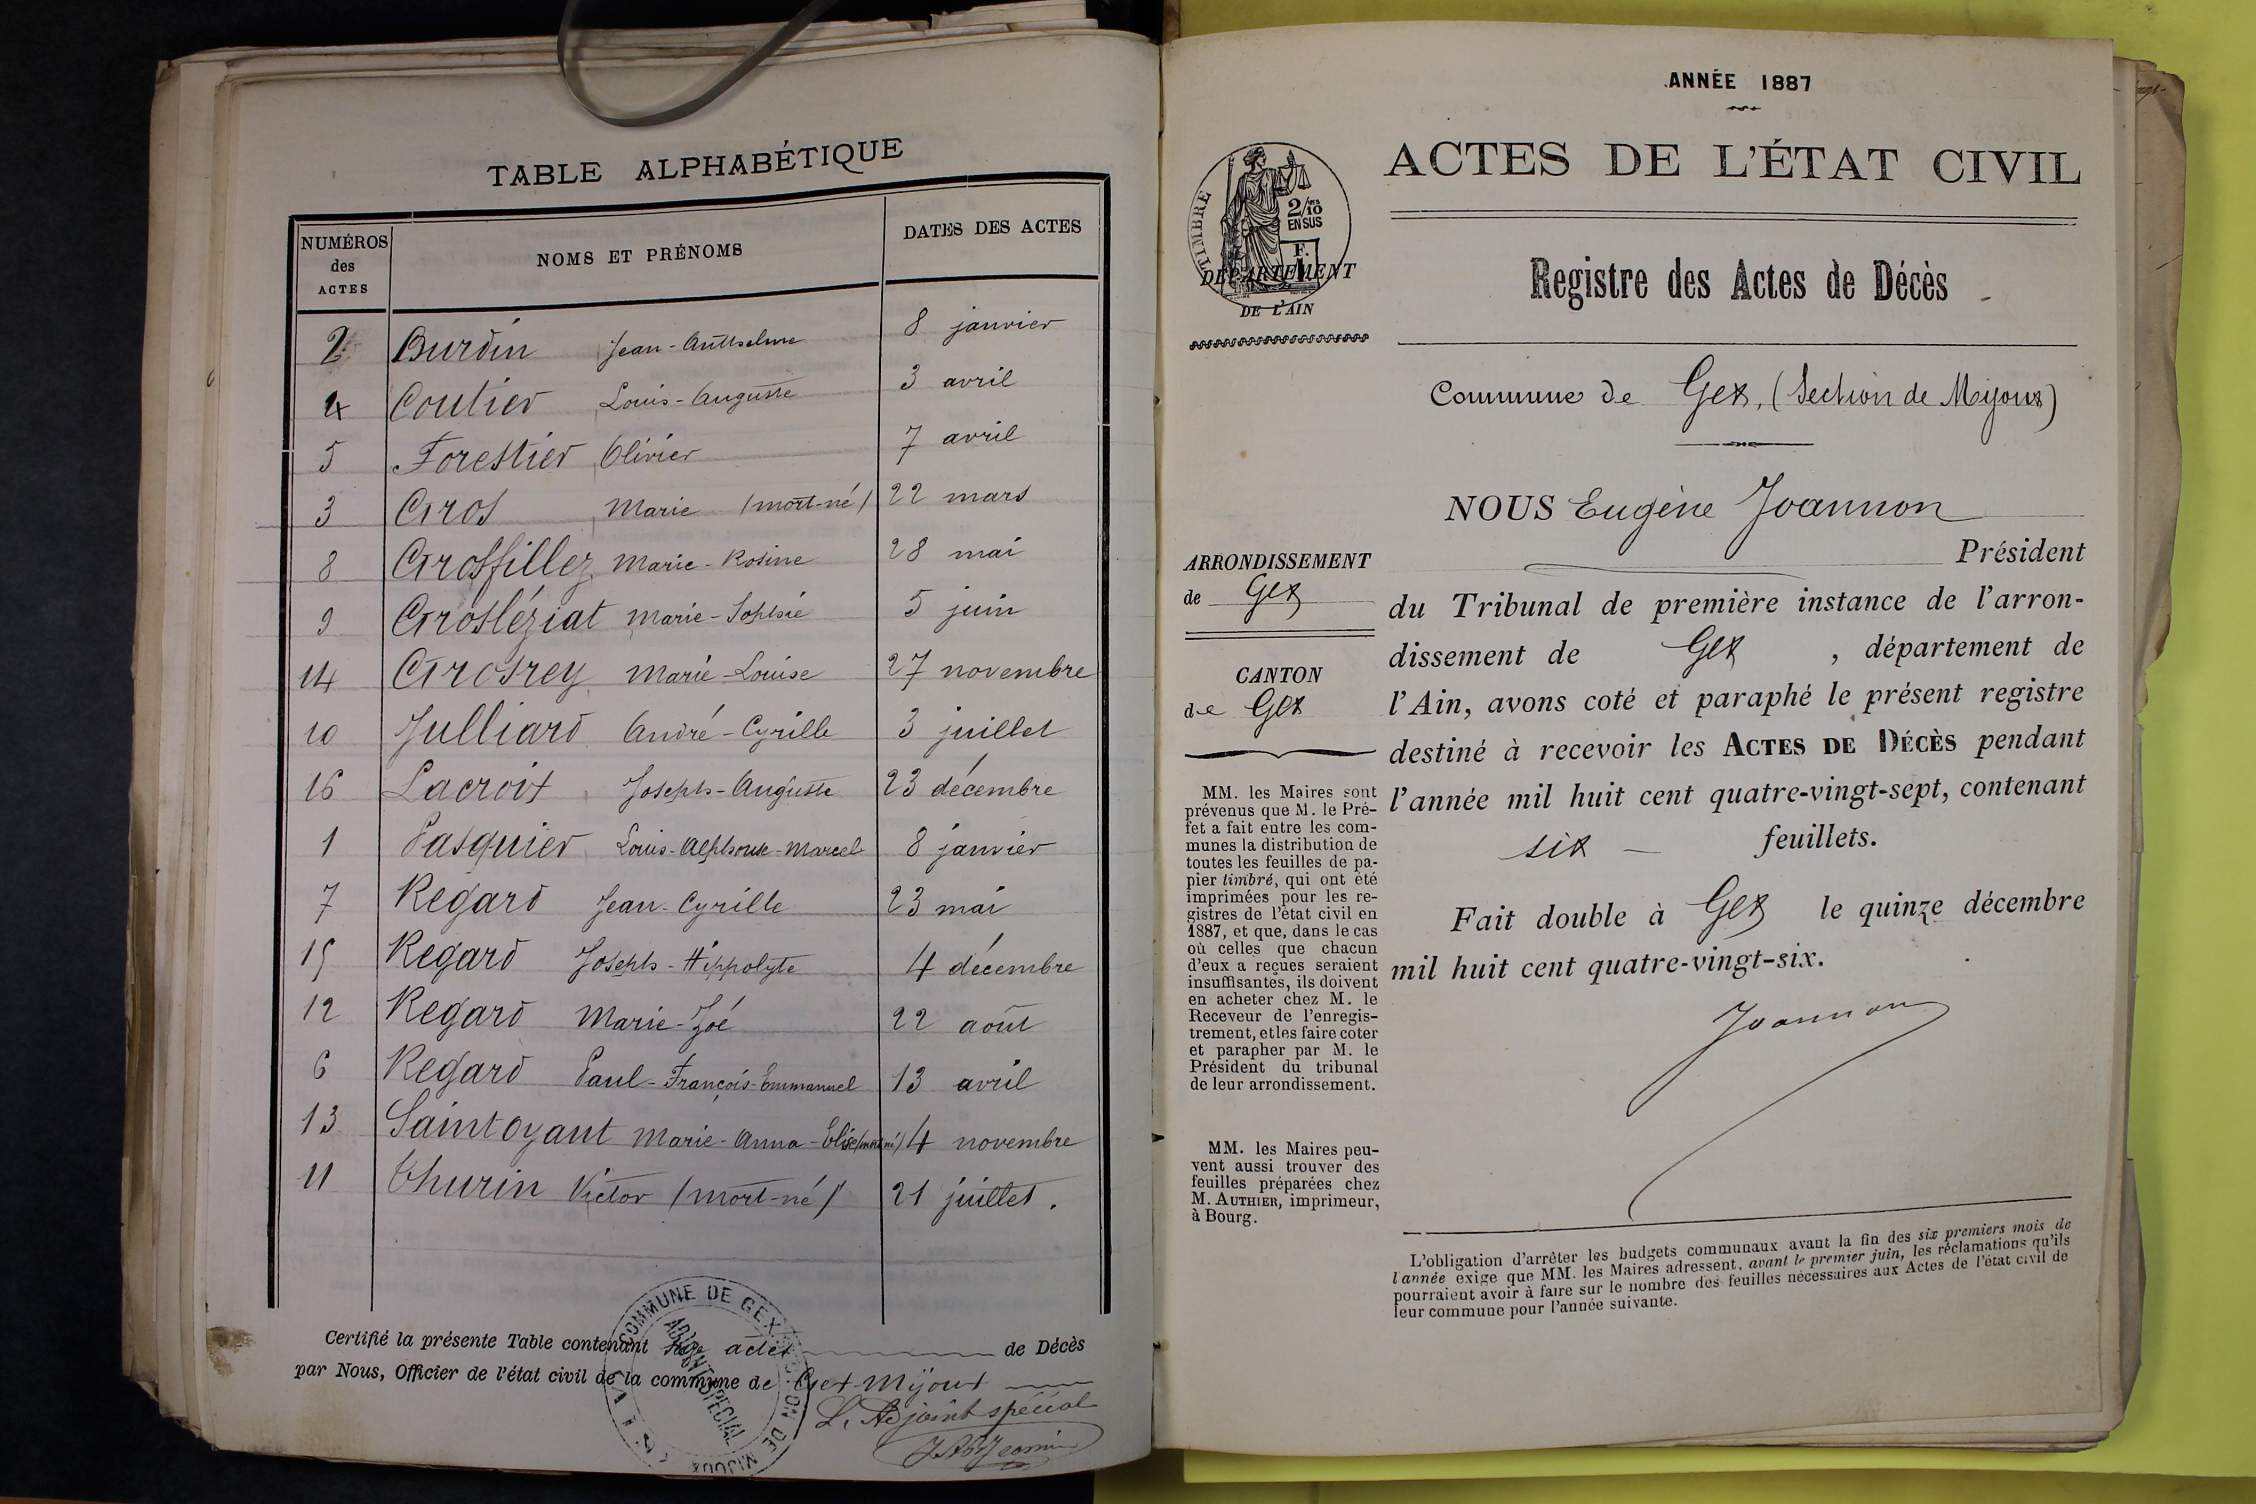 TABLE ALPHABÉTIQUE
NUMÉROS des ACTES NOMS ET PRÉNOMS DATES DES ACTES
2 Burdin Jean-Anthelme 8 janvier
4 Coutier Louis-Auguste 3 avril
5 Forestier Olivier 7 avril
3 Gros Marie (mort-né) 22 mars
8 Grosfillez Marie-Rosine 28 mai
9 Grosléziat Marie-Sophie 5 juin
14 Grosrey Marie-Louise 27 novembre
10 Julliard André-Cyrille 3 juillet
16 Lacroix Joseph-Auguste 23 décembre
1 Pasquier Louis-Alphonse-Marcel 8 janvier
7 Regard Jean-Cyrille 23 mai
15 Regard Joseph-Hippolyte 4 décembre
12 Regard Marie-Zoé 22 août
6 Regard Paul-François-Emmanuel 13 avril
13 Saintoyant Marie-Anna-Elise (mort né) 4 novembre
11 Thurin Victor (mort-né) 21 juillet.
Certifié la présente Table contenant actes de Décès
par Nous, Officier de l'état civil de la commune de Gex-Mijoux
L'Adjoint spécial
COMMUNE DE GEX SECTION DE MIJOUX
ADJOINT SPÉCIAL
AIN
ANNÉE 1887
ACTES DE L'ÉTAT CIVIL
TIMBRE
2/10
EN SUS
F.
1
DÉPARTEMENT
DE L'AIN
Registre des Actes de Décès
Commune de Gex, (Section de Mijoux)
NOUS Eugène Joannon
Président
du Tribunal de première instance de l'arron-
dissement de Gex, département de
l'Ain, avons coté et paraphé le présent registre
destiné à recevoir les ACTES DE DÉCÈS pendant
l'année mil huit cent quatre-vingt-sept, contenant
six feuillets.
Fait double à Gex le quinze décembre
mil huit cent quatre-vingt-six.
Joannon
ARRONDISSEMENT
de Gex
CANTON
de Gex
MM. les Maires sont
prévenus que M. le Pré-
fet a fait entre les com-
munes la distribution de
toutes les feuilles de pa-
pier timbré, qui ont été
imprimées pour les re-
gistres de l'état civil en
1887, et que, dans le cas
où celles que chacun
d'eux a reçues seraient
insuffisantes, ils doivent
en acheter chez M. le
Receveur de l'enregis-
trement, et les faire coter
et parapher par M. le
Président du tribunal
de leur arrondissement.
MM. les Maires peu-
vent aussi trouver des
feuilles préparées chez
M. AUTHIER, imprimeur,
à Bourg.
L'obligation d'arrêter les budgets communaux avant la fin des six premiers mois de
l'année exige que MM. les Maires adressent, avant le premier juin, les réclamations qu'ils
pourraient avoir à faire sur le nombre des feuilles nécessaires aux Actes de l'état civil de
leur commune pour l'année suivante.